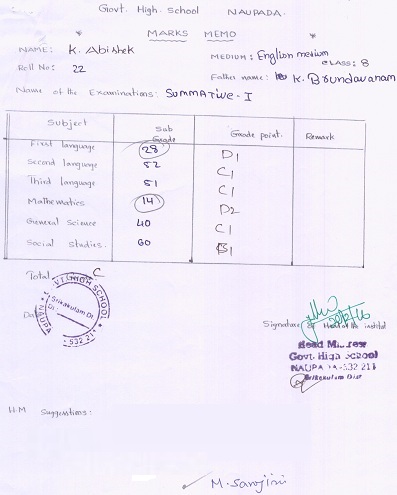 Govt. High. School NAUPADA.
MARKS MEMO
NAME: K. Abishek MEDIUM: English medium
CLASS: 8
Roll No: 22 Father name: K. Brundavanam
Name of the Examinations: SUMMATIVE - I
Subject Sub Grade Grade point. Remark
First language 28 D1
Second language 52 C1
Third language 51 C1
Mathematics 14 D2
General Science 40 C1
Social studies. 60 B1
Total C
HIGH SCHOOL
Srikakulam Dt
NAUPA
532 21
Signature of Head of the institut
Head
Govt. High School
NAUPA DA-532 211
Srikakulam Dist
H.M Suggestions:
M. Sarojini